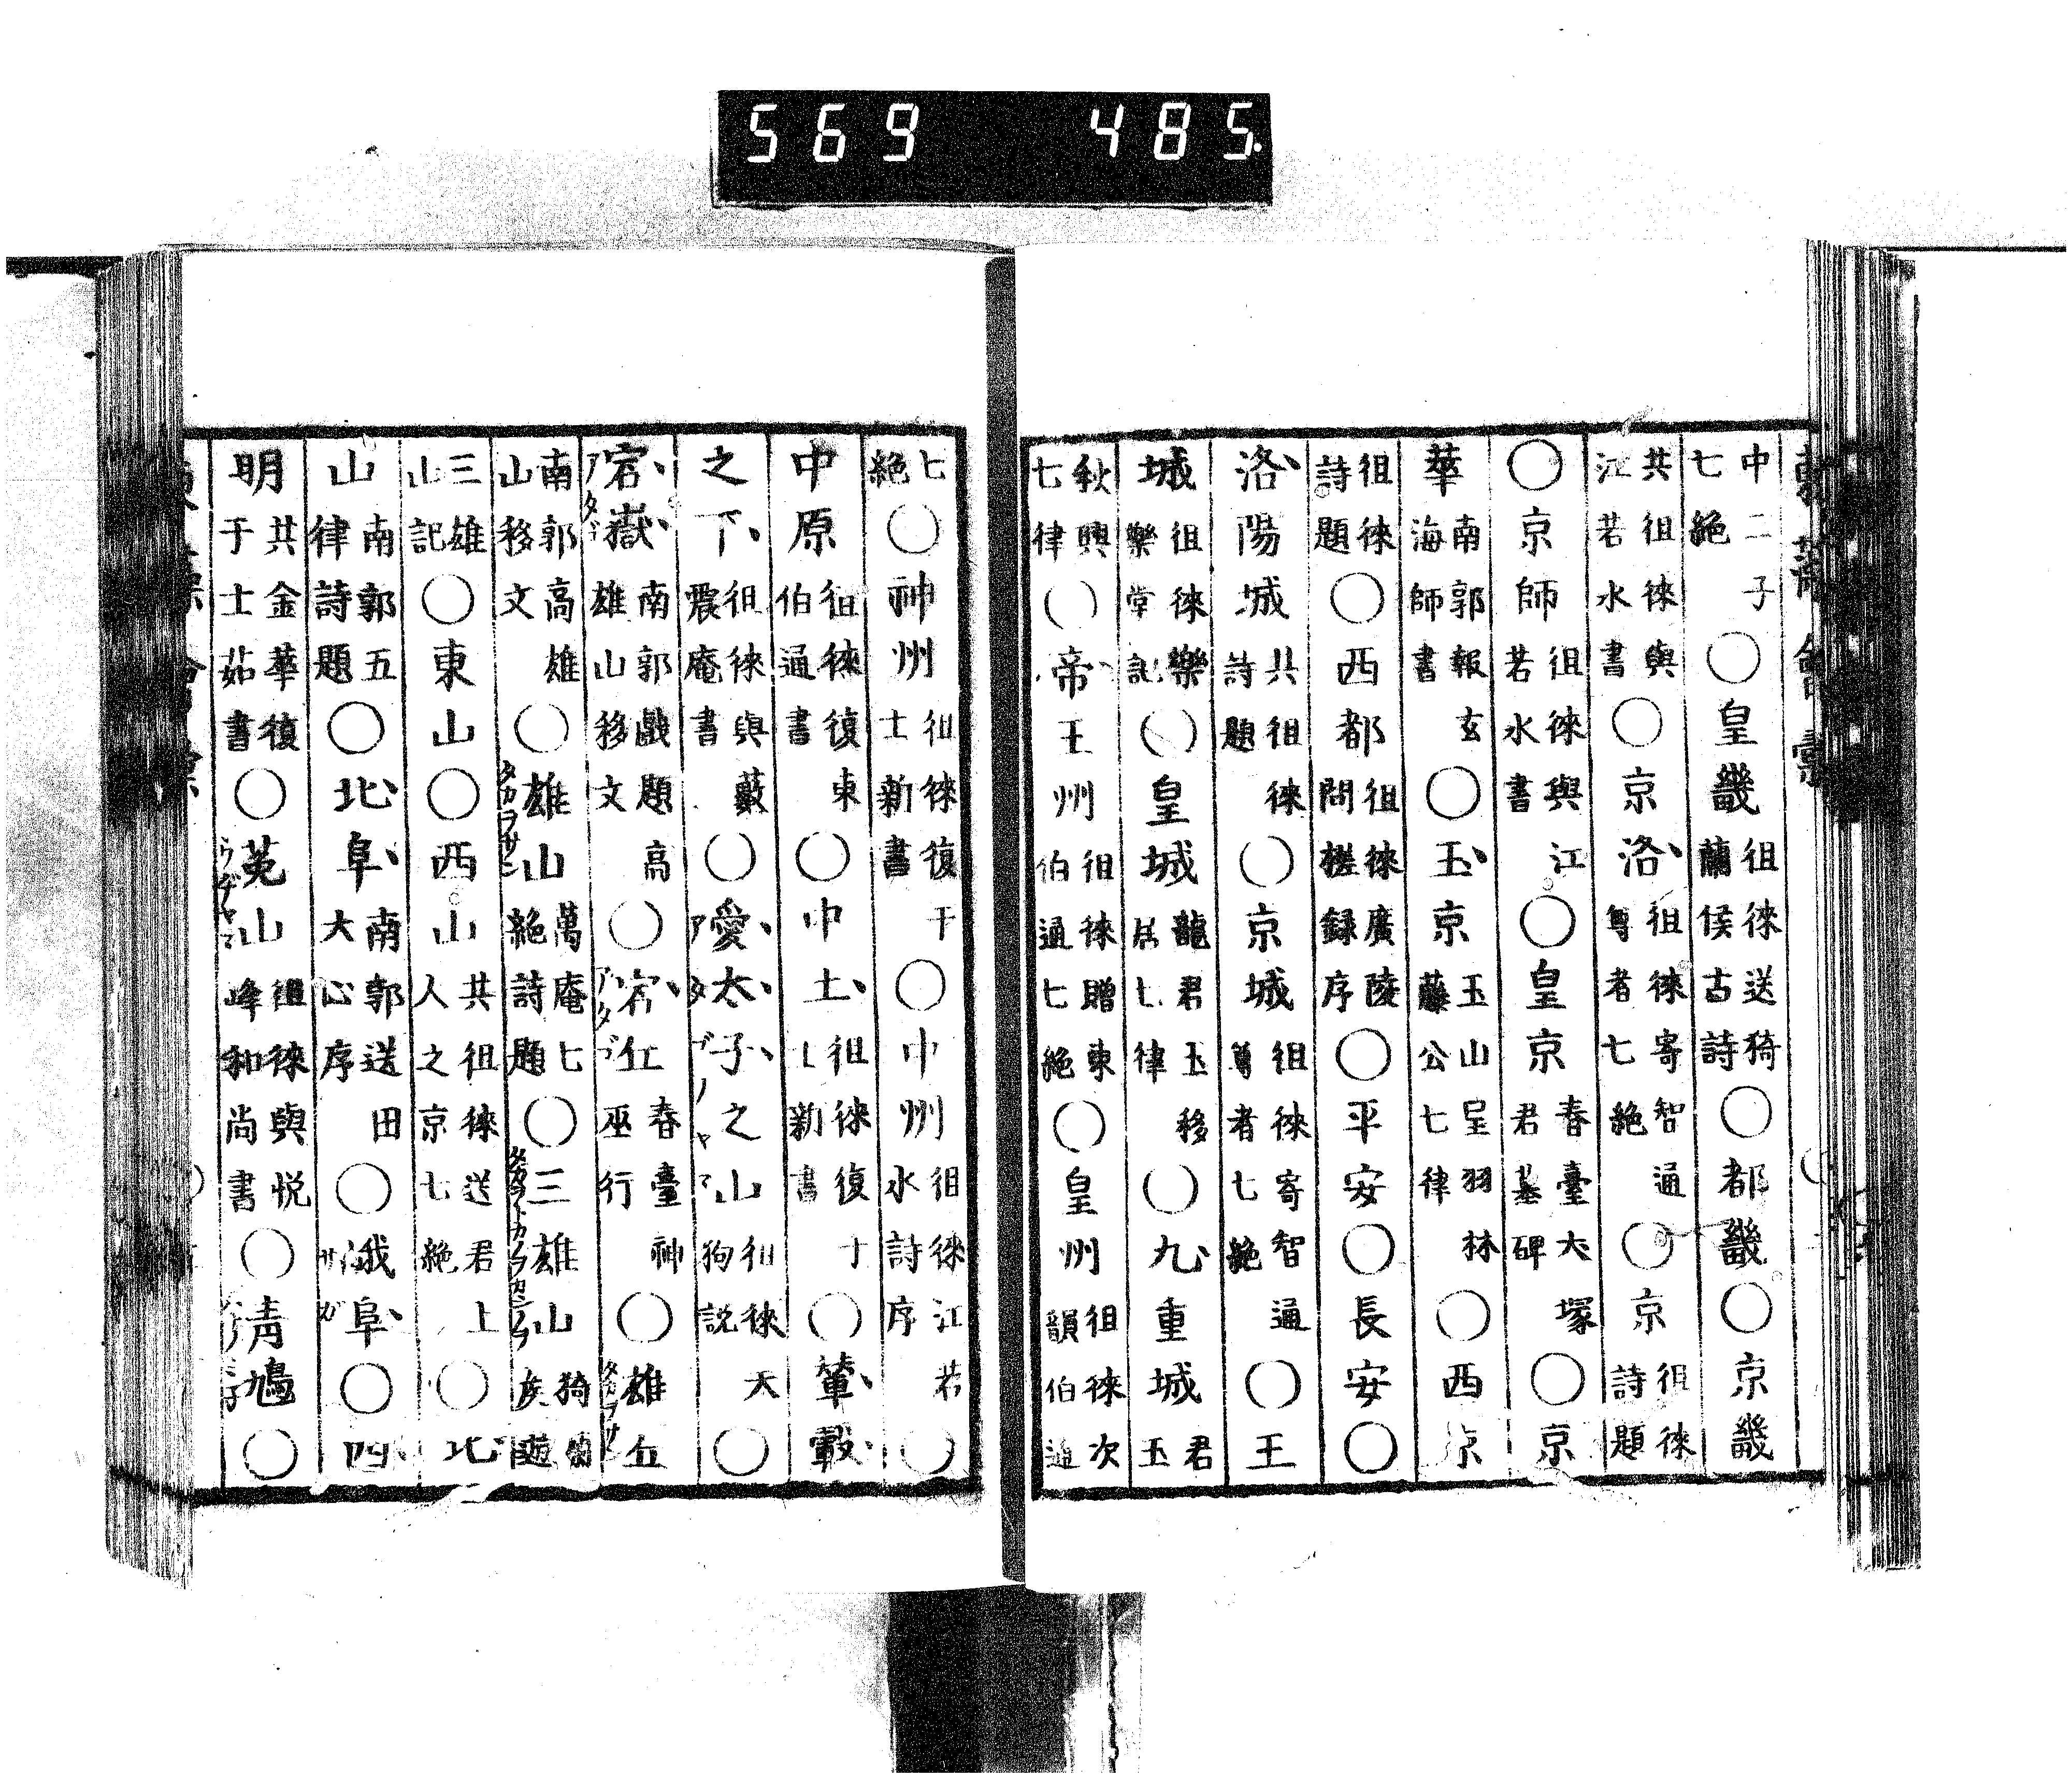 569 485
中二子七絶○皇畿徂徠送猗蘭侯古詩○都畿○京畿
共徂徠與江若水書○京洛徂徠寄智通尊者七絶○京徂徠詩題
○京師徂徠與江若水書○皇京春臺大塚君墓碑○京
華南郭報玄海師師書○玉京玉山呈羽林藤公七律○西京
徂徠詩題○西都徂徠廣陵問槎録序○平安○長安○
洛陽城共徂徠詩題○京城徂徠寄智通尊者七絶○王
城徂徠樂樂堂記○皇城龍君玉移居七律○九重城君玉
秋興七律○帝王州徂徠贈東伯通七絶○皇州徂徠次韻伯通
七絶○神州徂徠復于士新書○中州徂徠江若水詩序○
中原徂徠復東伯通書○中土徂徠復于士新書○輦轂
之下徂徠與藪震庵書○愛太子之山徂徠天狗説○
宕嶽南郭戲題高雄山移文○宕丘春臺神巫行○雄丘
南郭高雄山移文○雄山萬庵七絶詩題○三雄山猗蘭侯遊
三雄山記○東山○西山共徂徠送君上人之京七絶○北
山南郭五律詩題○北阜南郭送田大心序○峨阜○四
明共金華復于士茹書○菟山徂徠與悦峰和尚書○青鳩○